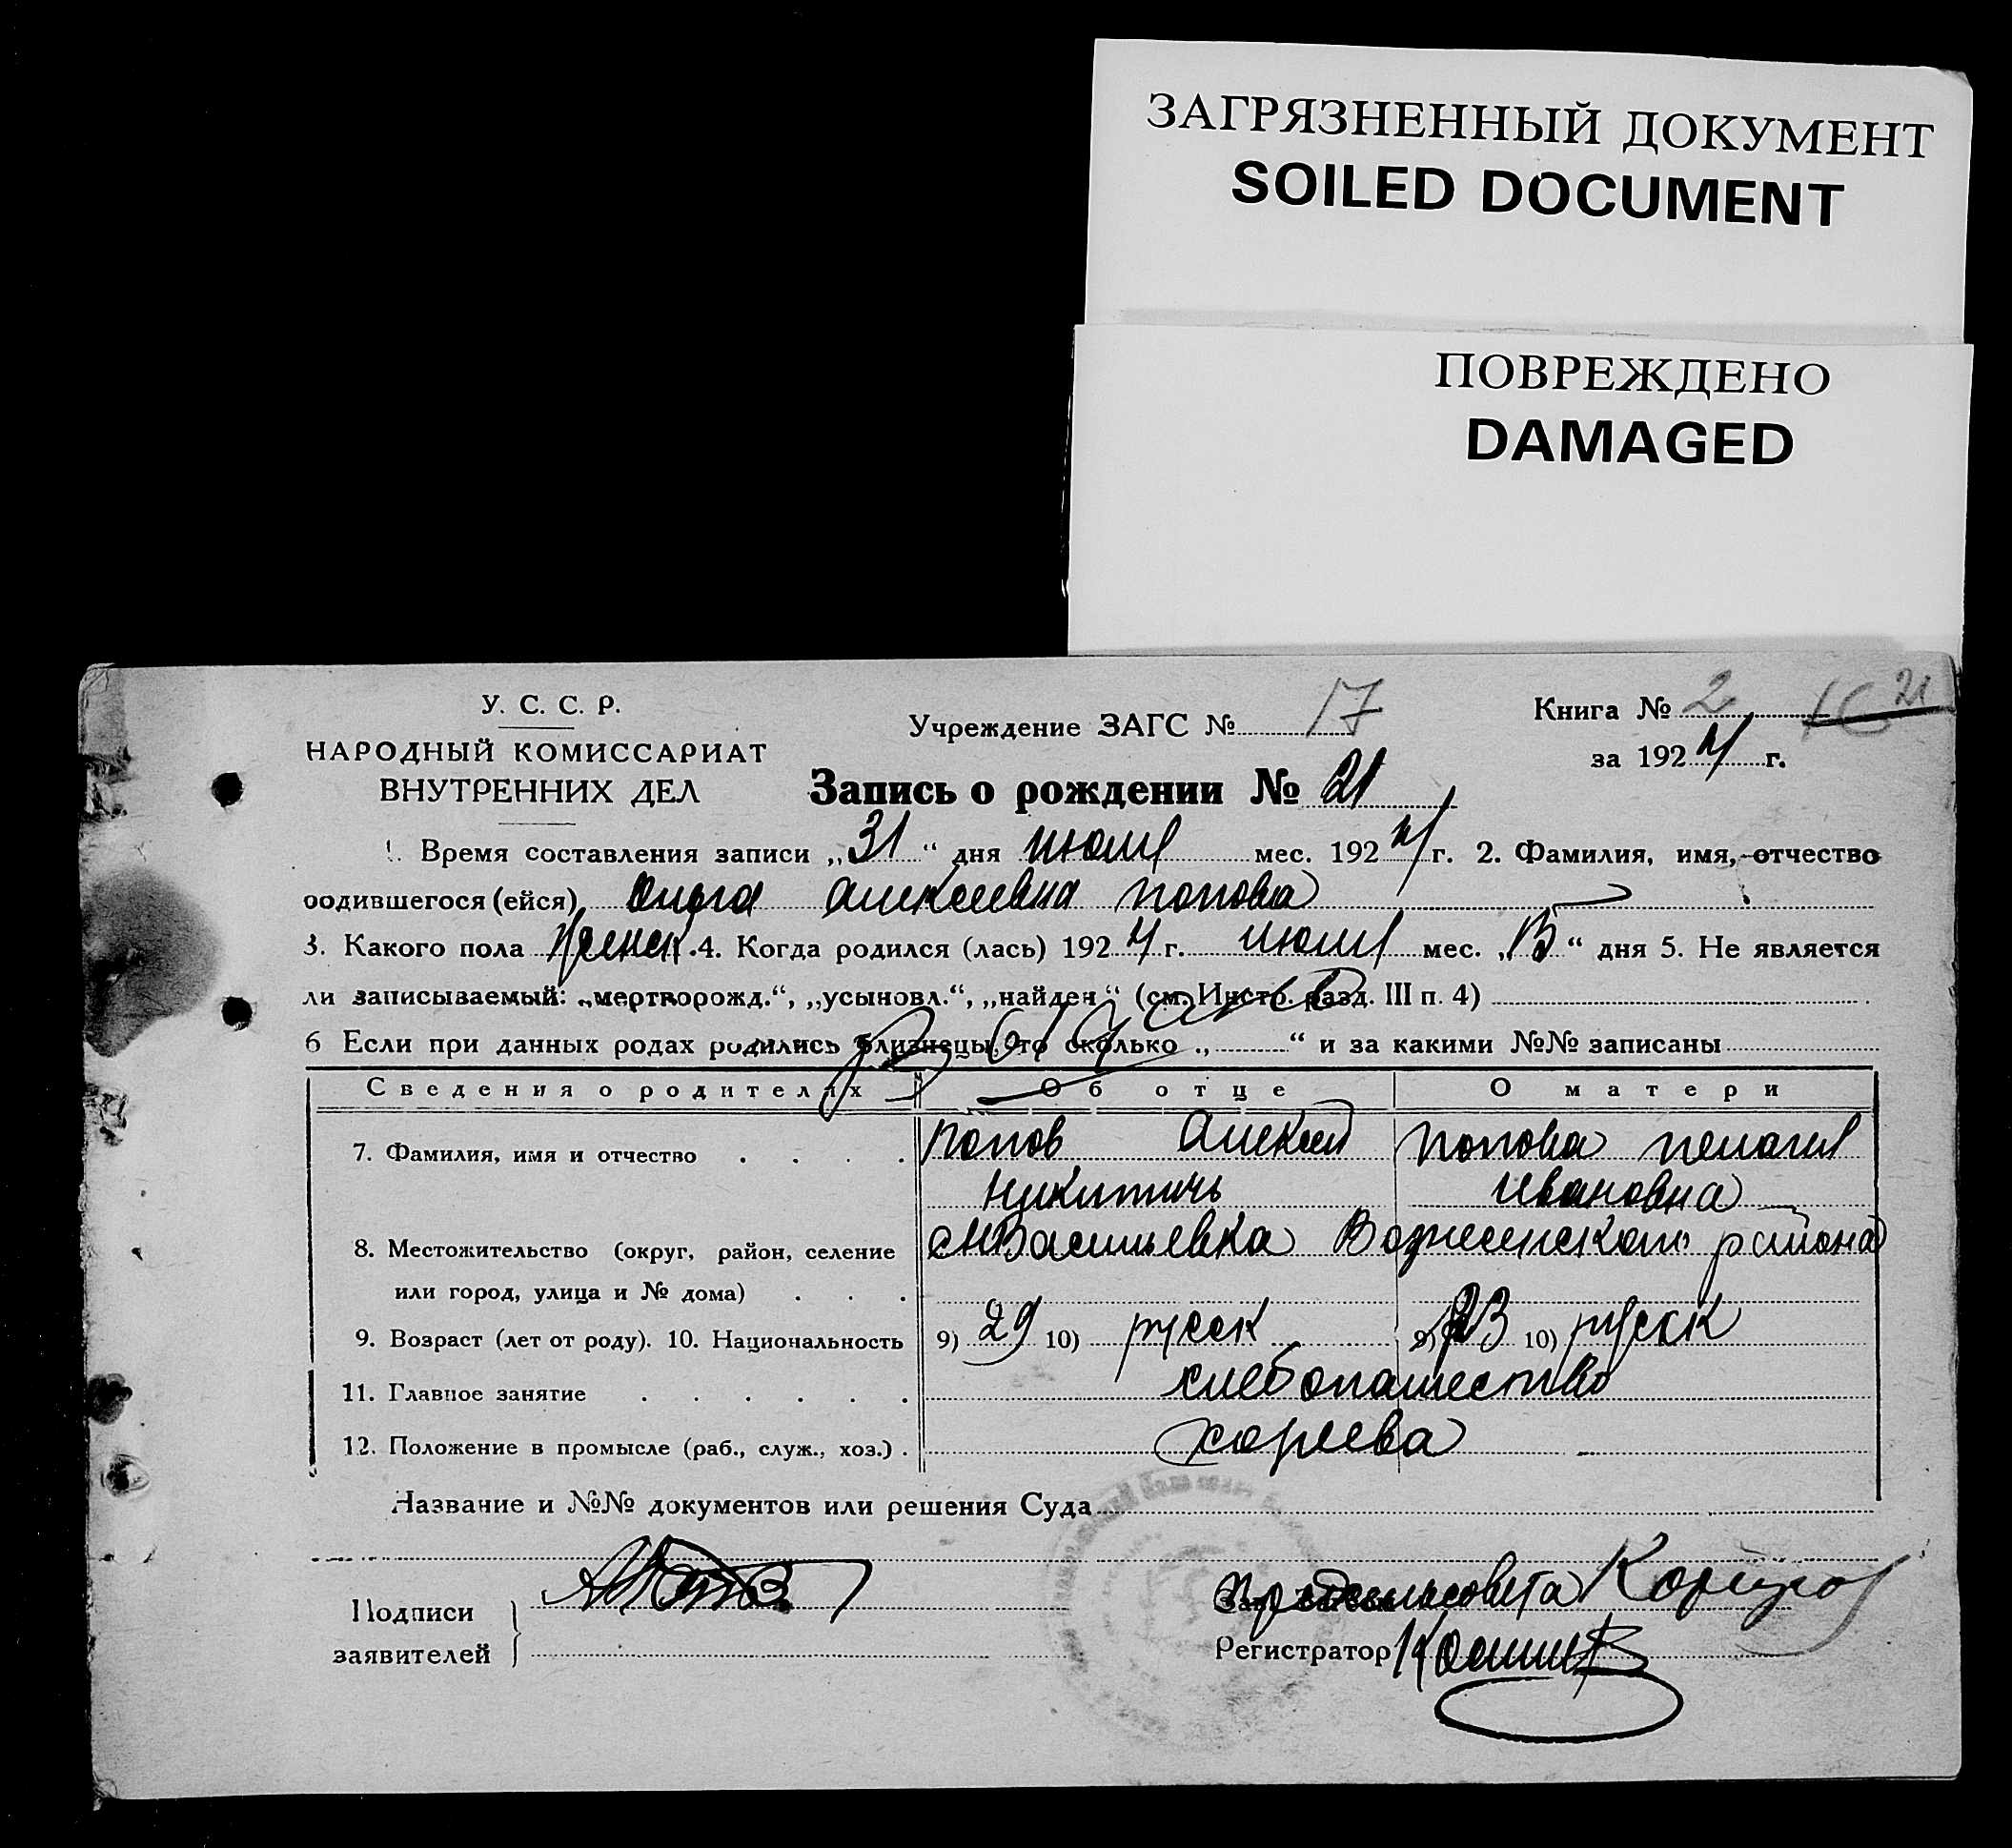 ЗАГРЯЗНЕННЫЙ ДОКУМЕНТ
SOILED DOCUMENT
ПОВРЕЖДЕНО
DAMAGED
У. С. С. Р.
НАРОДНЫЙ КОМИССАРИАТ
ВНУТРЕННИХ ДЕЛ
Учреждение ЗАГС № 17
Книга № 2 21
за 1924 г.
Запись о рождении № 21
1. Время составления записи „31“ дня июля мес. 1924 г. 2. Фамилия, имя, отчество
родившегося (ейся) Ольга Алексеевна Попова
3. Какого пола женск. 4. Когда родился (лась) 1924 г. июля мес. „13“ дня 5. Не является
ли записываемый: „мертворожд.“, „усыновл.“, „найден“ (см. Инстр. разд. III п. 4)
6 Если при данных родах родились близнецы, то сколько „ “ и за какими №№ записаны
Сведения о родителях Об отце О матери
7. Фамилия, имя и отчество Попов Алексей Попова Пелагия
Никитичь Ивановна
8. Местожительство (округ, район, селение Васильевка района
или город, улица и № дома)
9. Возраст (лет от роду). 10. Национальность 9) 29 10) русск 9) 23 10) русск
11. Главное занятие хлебопашество
12. Положение в промысле (раб., служ., хоз.)
Название и №№ документов или решения Суда
Подписи
заявителей
Предсельсовета
Регистратор